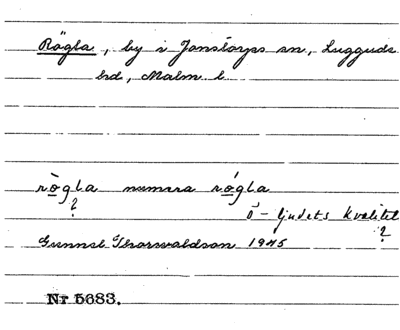 Rögla, by i Jonstorps sn, Luggude
hd, Malm. l.
rògla numera rógla
?
ó - ljudets kvalitet
?
Gunnel Thorwaldson 1945
Nr 5683.